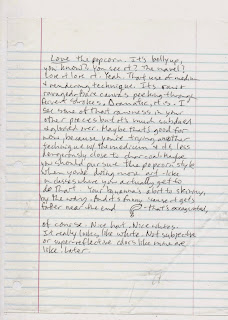 Love the popcorn. It's belly up,
you know? You see it? The smell?
Love + love it. Yeah. That use of medium
+ rendering technique. It's raw +
ravaged. Have canvas peeking through
fervent strokes. Dramatic, it is. I
see some of that rawness in your
other pieces but it's much subdued
+ glossed over. Maybe that's good for
now, because you're trying another
technique w/ the medium + it's less
dangerously close to char-coal. Maybe
you should pursue this popcorn style
when you're doing more act-like
in classes where you actually get to
do that. Your bananna's a bit to skinny,
by the way. And it's funny 'cause it gets
fatter near the end - that's exaggerated,
of course. Nice but. Nice whites.
It really looks like white. Not subjective
or super-reflective colors like mine are
like. Later.